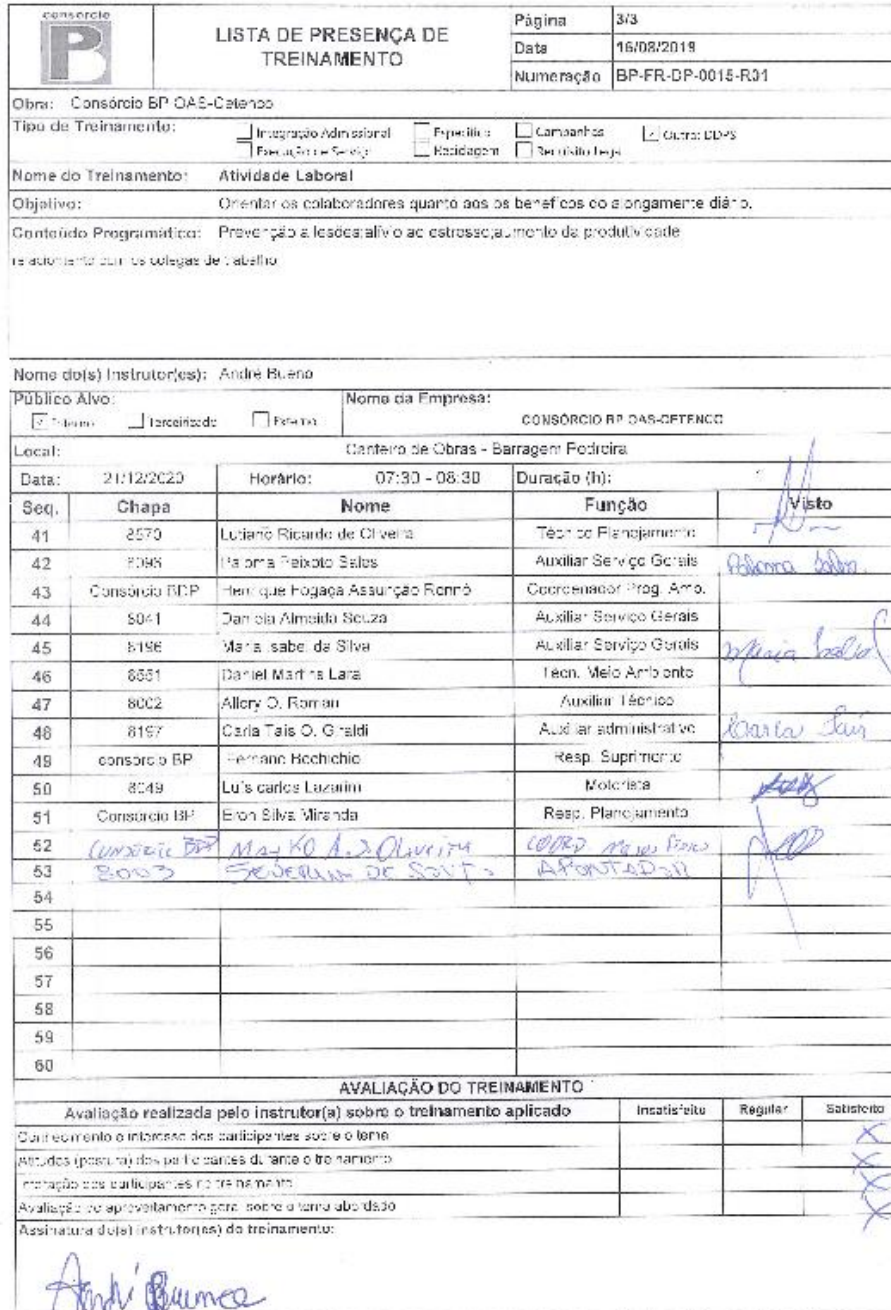 consorcio
LISTA DE PRESENÇA DE
TREINAMENTO
Página 3/3
Data 16/08/2019
Numeração BP-FR-DP-0015-R01
Obra: Consórcio BP OAS-Cetenco
Tipo de Treinamento: Integração Admissional Específico Campanhas Outro: DDPS
Execução de Serviço Reciclagem Requisito Legal
Nome do Treinamento: Atividade Laboral
Objetivo: Orientar os colaboradores quanto aos os beneficos do alongamente diário.
Conteúdo Programático: Prevenção a lesões;alívio ao estresse;aumento da produtividade
relacionamento com os colegas de trabalho
Nome do(s) Instrutor(es): André Bueno
Público Alvo: Nome da Empresa:
Interno Terceirizado Externo CONSÓRCIO BP OAS-CETENCO
Local: Canteiro de Obras - Barragem Pedreira
Data: 21/12/2020 Horário: 07:30 - 08:30 Duração (h):
Seq. Chapa Nome Função Visto
41 8570 Lutiano Ricardo de Oliveira Técnico Planejamento
42 Paloma Peixoto Sales Auxiliar Serviço Gerais Paloma Sales
43 Consórcio BDP Henrique Fogaça Assunção Ronnó Coordenador Prog. Amb.
44 8041 Daniela Almeida Souza Auxiliar Serviço Gerais
45 8196 Maria Isabel da Silva Auxiliar Serviço Gerais Maria Isabel
46 8551 Daniel Martins Lara Técn. Meio Ambiente
47 8002 Allery O. Roman Auxiliar Técnico
48 8197 Carla Tais O. Giraldi Auxiliar administrativo Carla Taís
49 consorcio BP Fernano Bochichio Resp. Suprimento
50 8049 Luís carlos Lazarini Motorista
51 Consorcio BP Eron Silva Miranda Resp. Planejamento
52 Consórcio BDP Oliveira COORD.
53 8003 SEVERINO DE APONTADOR
54
55
56
57
58
59
60
AVALIAÇÃO DO TREINAMENTO
Avaliação realizada pelo instrutor(a) sobre o treinamento aplicado Insatisfeito Regular Satisfeito
Conhecimento e interesse dos participantes sobre o tema X
Atitudes (postura) dos participantes durante o treinamento X
Interação dos participantes no treinamento X
Avaliação do aproveitamento geral sobre o tema abordado X
Assinatura do(a) instrutor(es) do treinamento:
André Bueno